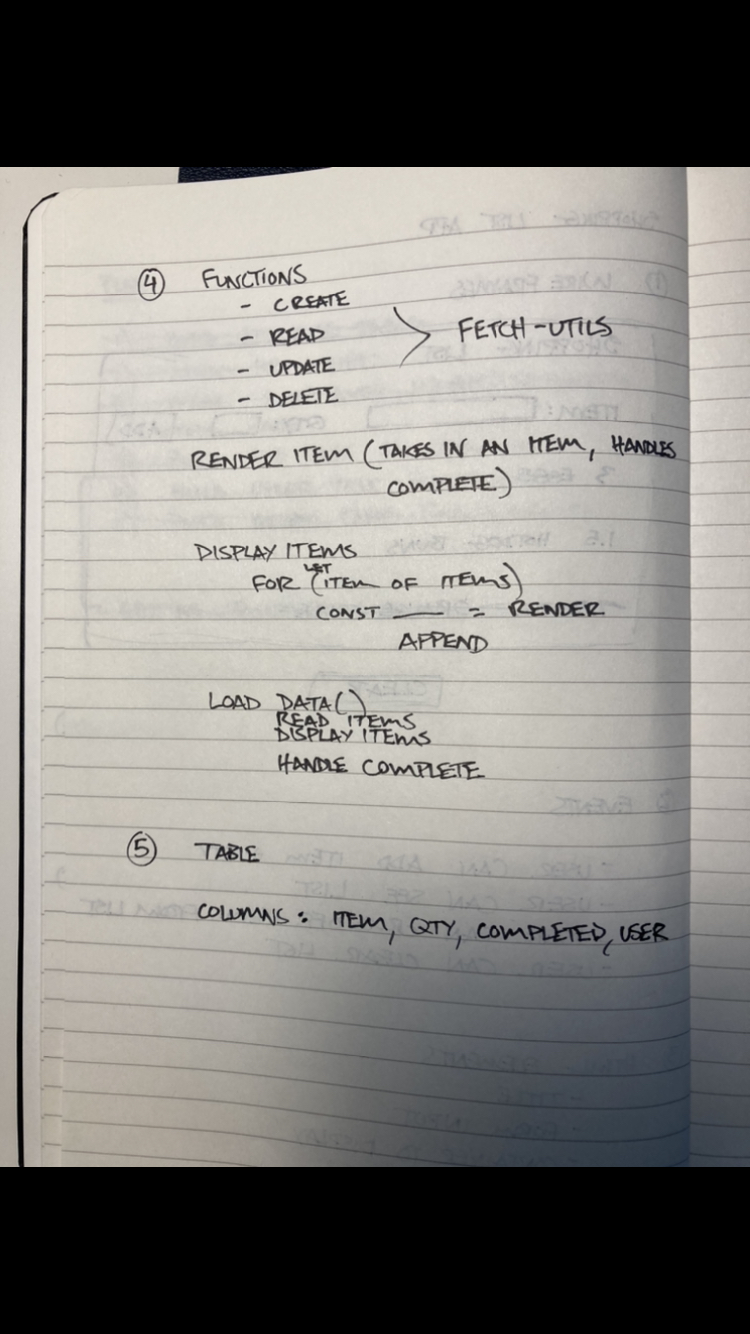 ④ FUNCTIONS
- CREATE
- READ
- UPDATE
- DELETE
> FETCH-UTILS
RENDER ITEM (TAKES IN AN ITEM, HANDLES
COMPLETE)
DISPLAY ITEMS
FOR (LET ITEM OF ITEMS)
CONST ___ = RENDER
APPEND
LOAD DATA()
READ ITEMS
DISPLAY ITEMS
HANDLE COMPLETE
⑤ TABLE
COLUMNS: ITEM, QTY, COMPLETED, USER